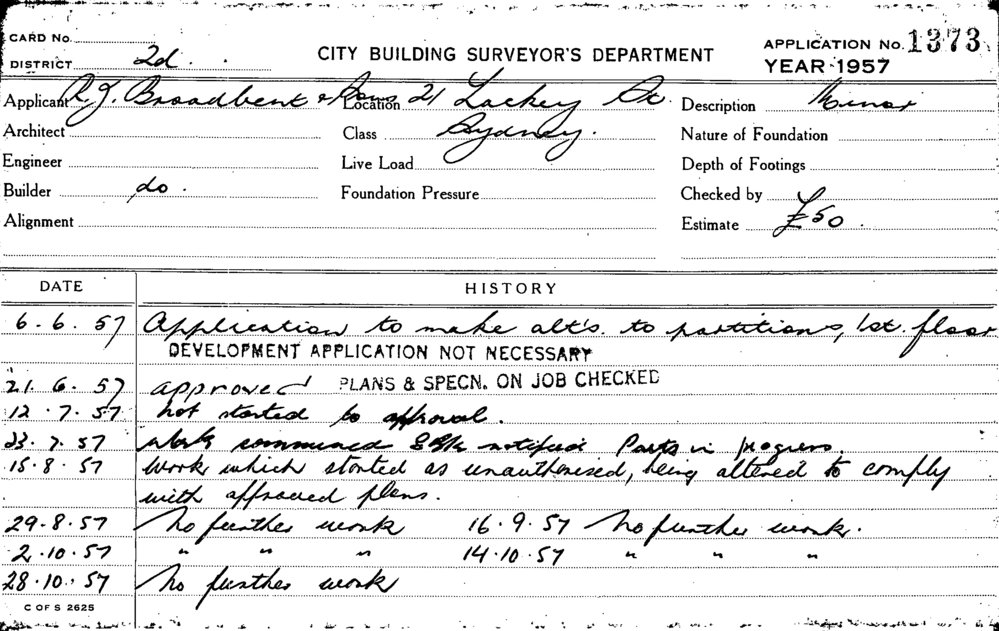 CARD No.
DISTRICT 2d.
CITY BUILDING SURVEYOR'S DEPARTMENT
APPLICATION No. 1373
YEAR 1957
Applicant R.J. Broadbent & Sons Location 21 Lackey St. Description Minor
Architect Class Sydney. Nature of Foundation
Engineer Live Load Depth of Footings
Builder do. Foundation Pressure Checked by
Alignment Estimate £50.
DATE HISTORY
6.6.57 Application to make alt's. to partitions, 1st. floor
DEVELOPMENT APPLICATION NOT NECESSARY
21.6.57 approved PLANS & SPECN. ON JOB CHECKED
12.7.57 not started to approval.
23.7.57 work commenced notified Parts in progress
15.8.57 work which started as unauthorised, being altered to comply
with approved plans.
29.8.57 No further work 16.9.57 No further work.
2.10.57 " " " 14.10.57 " " "
28.10.57 No further work
C OF S 2625